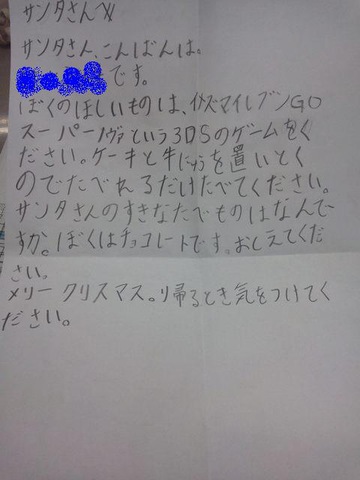 サンタさんへ
サンタさん、こんばんは。
です。
ぼくのほしいものは、イナズマイレブンGO
スーパーノヴァという3DSのゲームをく
ださい。ケーキと牛にゅうを置いとく
のでたべれるだけたべてください。
サンタさんのすきなたべものはなんで
すか。ぼくはチョコレートです。おしえてくだ
さい。
メリークリスマス。帰るとき気をつけてく
ださい。